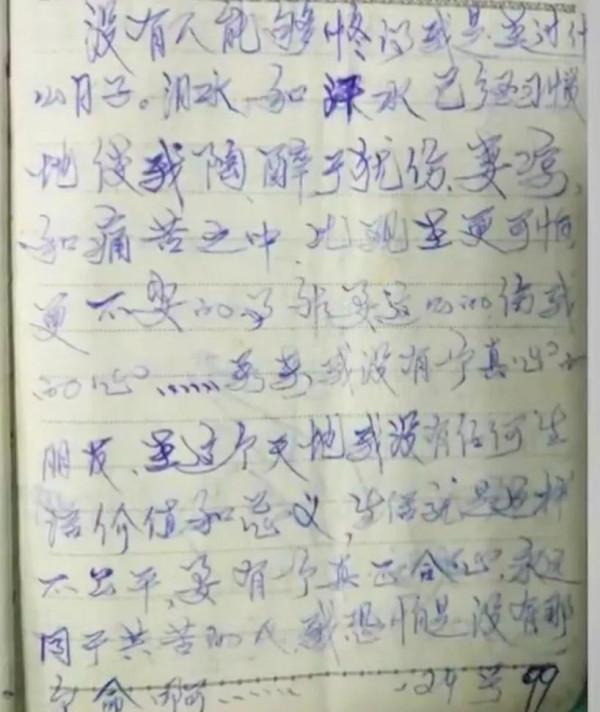 没有人能够终识我是在过什
么日子。泪水和汗水已经习惯
地使我陶醉于忧伤、哀
和痛苦之中 比现在更可怕
更不要的是 的伤我
的心……我没有个真心
朋友、在这个天地我没有任何生
活价值和意义，生活就是这样
不公平，要有个真正合心、永远
同于共苦的人我恐怕是没有那
个命啊…… 24号 99